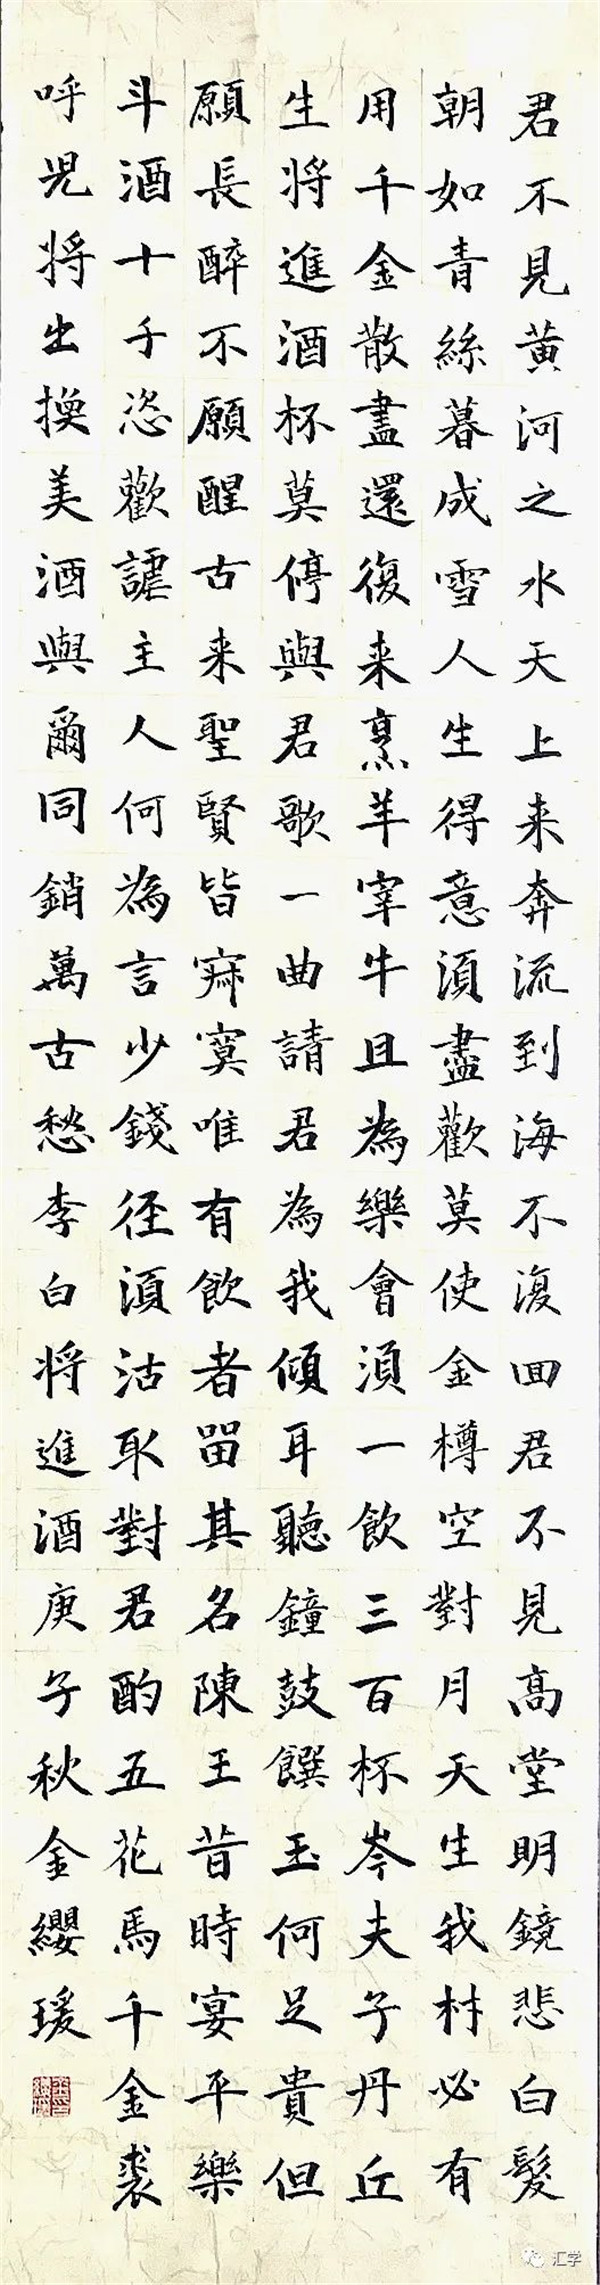 君不見黄河之水天上来奔流到海不復囬君不見高堂明鏡悲白髮
朝如青絲暮成雪人生得意須盡歡莫使金樽空對月天生我材必有
用千金散盡還復来烹羊宰牛且為樂會須一飲三百杯岑夫子丹丘
生將進酒杯莫停與君歌一曲請君為我傾耳聽鐘鼓饌玉何足貴但
願長醉不願醒古来聖賢皆寂寞唯有飲者留其名陳王昔時宴平樂
斗酒十千恣歡謔主人何為言少錢徑須沽取對君酌五花馬千金裘
呼兒將出換美酒與爾同銷萬古愁李白將進酒庚子秋金纓瑗
汇学